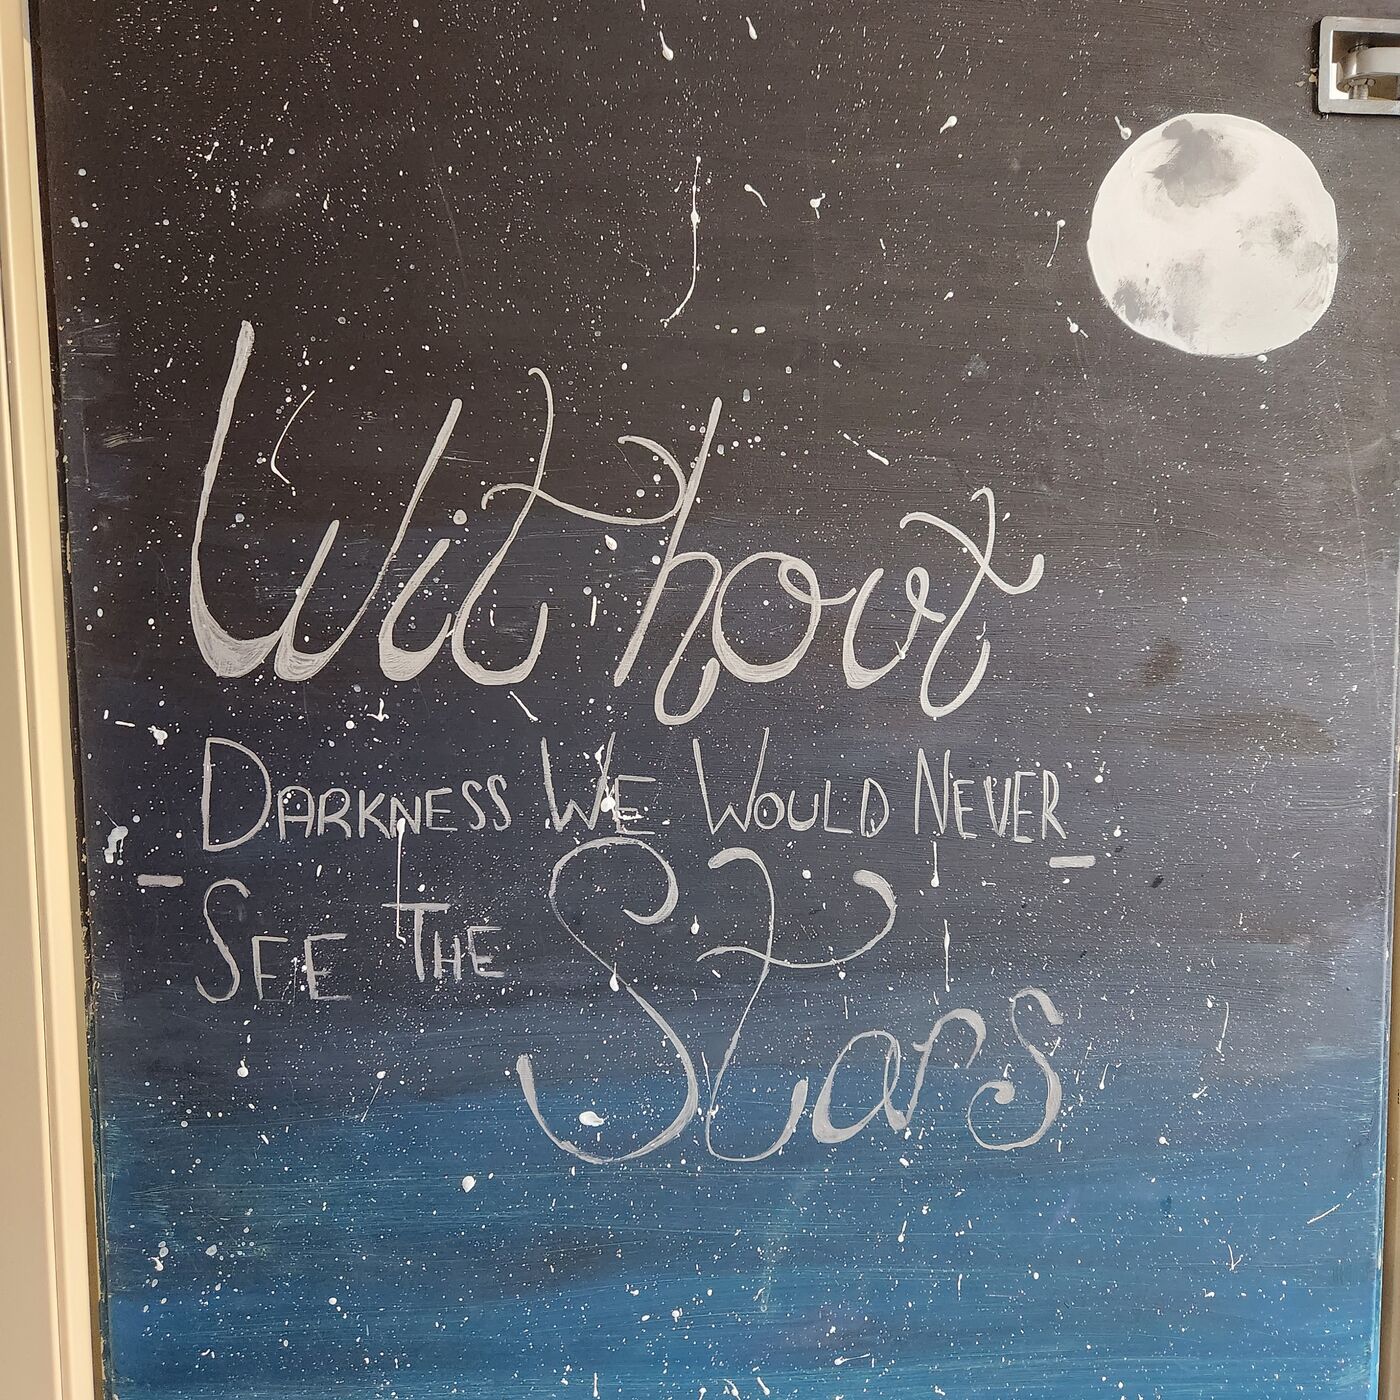 Without
DARKNESS WE WOULD NEVER
- SEE THE Stars -